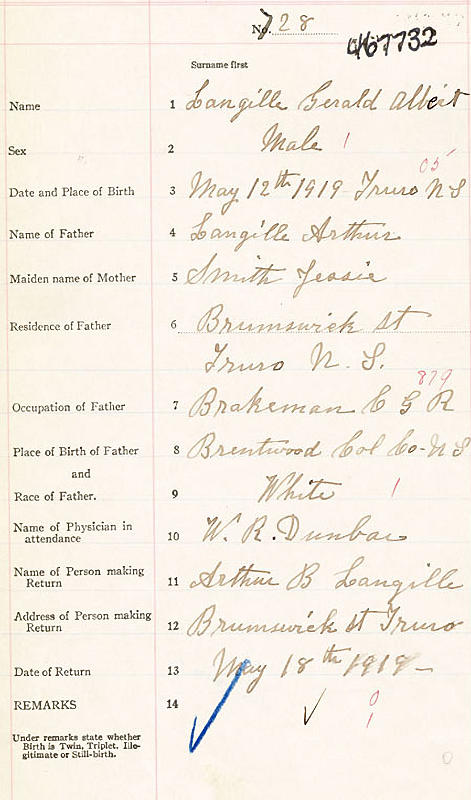 No. 728
467732
Surname first
Name 1 Langille Gerald Albert
Sex 2 Male 1
05
Date and Place of Birth 3 May 12th 1919 Truro N S
Name of Father 4 Langille Arthur
Maiden name of Mother 5 Smith Jessie
Residence of Father 6 Brumswick st
Truro N. S.
879
Occupation of Father 7 Brakeman C G R
Place of Birth of Father 8 Brentwood Col Co- N S
and
Race of Father. 9 White 1
Name of Physician in
attendance 10 W. R. Dunbar
Name of Person making
Return 11 Arthur B Langille
Address of Person making
Return 12 Brumswick st Truro
Date of Return 13 May 18th 1919
REMARKS 14 ✓ ✓ 0
1
Under remarks state whether
Birth is Twin, Triplet, Ille-
gitimate or Still-birth.
0